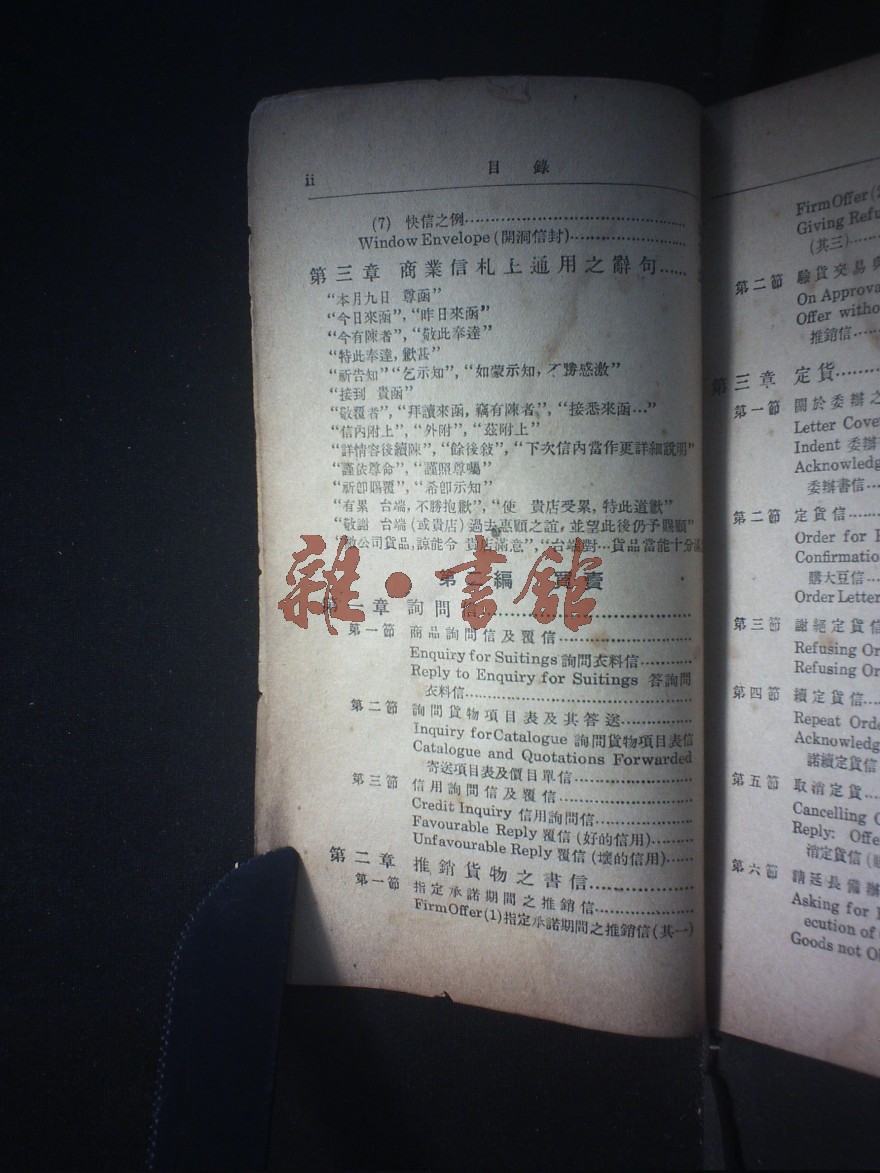 ii
目 錄
(7) 快信之例
Window Envelope (開洞信封)
第三章 商業信札上通用之辭句
“本月九日 尊函”
“今日來函”, “昨日來函”
“今有陳者”, “敬此奉達”
“特此奉達, 歉甚”
“祈告知” “乞示知”, “如蒙示知, 不勝感激”
“接到 貴函”
“敬覆者”, “拜讀來函, 竊有陳者”, “接悉來函…”
“信內附上”, “外附”, “茲附上”
“詳情容後續陳”, “餘後敍”, “下次信內當作更詳細說明”
“謹依尊命”, “謹照尊囑”
“祈卽賜覆”, “希卽示知”
“有累 台端, 不勝抱歉”, “使 貴店受累, 特此道歉”
“敬謝 台端 (或貴店) 過去惠顧之誼, 並望此後仍予賜顧”
公司貨品, 諒能令 貴店滿意”, “台端對…貨品當能十分
第二編 買賣
第一章 詢問
第一節 商品詢問信及覆信
Enquiry for Suitings 詢問衣料信
Reply to Enquiry for Suitings 答詢問
衣料信
第二節 詢問貨物項目表及其答送
Inquiry for Catalogue 詢問貨物項目表信
Catalogue and Quotations Forwarded
寄送項目表及價目單信
第三節 信用詢問信及覆信
Credit Inquiry 信用詢問信
Favourable Reply 覆信 (好的信用)
Unfavourable Reply 覆信 (壞的信用)
第二章 推銷貨物之書信
第一節 指定承諾期間之推銷信
Firm Offer (1) 指定承諾期間之推銷信 (其一)
Firm Offer (
Giving Refu
(其三)
第二節 驗貨交易與
On Approva
Offer witho
推銷信
第三章 定貨
第一節 關於委辦之
Letter Cove
Indent 委辦
Acknowledg
委辦書信
第二節 定貨信
Order for
Confirmatio
購大豆信
Order Letter
第三節 謝絕定貨信
Refusing Or
Refusing Or
第四節 續定貨信
Repeat Orde
Acknowledg
諾續定貨信
第五節 取消定貨
Cancelling
Reply: Offe
消定貨信
第六節 請延長備辦
Asking for
ecution of
Goods not O
雜·書館